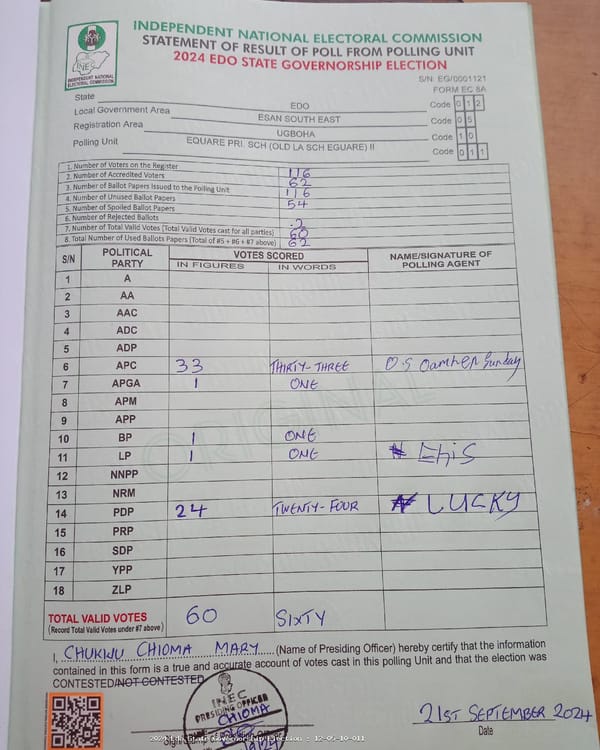 INDEPENDENT NATIONAL ELECTORAL COMMISSION
STATEMENT OF RESULT OF POLL FROM POLLING UNIT
2024 EDO STATE GOVERNORSHIP ELECTION
INEC
INDEPENDENT NATIONAL
ELECTORAL COMMISSION
S/N: EG/0001121
FORM EC 8A
State EDO Code 0 1 2
Local Government Area ESAN SOUTH EAST Code 0 5
Registration Area UGBOHA Code 1 0
Polling Unit EQUARE PRI. SCH (OLD LA SCH EGUARE) II Code 0 1 1
1. Number of Voters on the Register 116
2. Number of Accredited Voters 62
3. Number of Ballot Papers Issued to the Polling Unit 116
4. Number of Unused Ballot Papers 54
5. Number of Spoiled Ballot Papers
6. Number of Rejected Ballots 2
7. Number of Total Valid Votes (Total Valid Votes cast for all parties) 60
8. Total Number of Used Ballots Papers (Total of #5 + #6 + #7 above) 62
S/N POLITICAL PARTY VOTES SCORED NAME/SIGNATURE OF POLLING AGENT
IN FIGURES IN WORDS
1 A
2 AA
3 AAC
4 ADC
5 ADP
6 APC 33 THIRTY-THREE O.S Sunday
7 APGA 1 ONE
8 APM
9 APP
10 BP 1 ONE
11 LP 1 ONE Ehis
12 NNPP
13 NRM
14 PDP 24 TWENTY-FOUR LUCKY
15 PRP
16 SDP
17 YPP
18 ZLP
ORIGINAL
TOTAL VALID VOTES 60 SIXTY
(Record Total Valid Votes under #7 above)
I, CHUKWU CHIOMA MARY (Name of Presiding Officer) hereby certify that the information
contained in this form is a true and accurate account of votes cast in this polling Unit and that the election was
CONTESTED/NOT CONTESTED
INEC
PRESIDING OFFICER
CHIOMA
21ST SEPTEMBER 2024
Date
2024 Edo State Governorship Election : 12-05-10-011